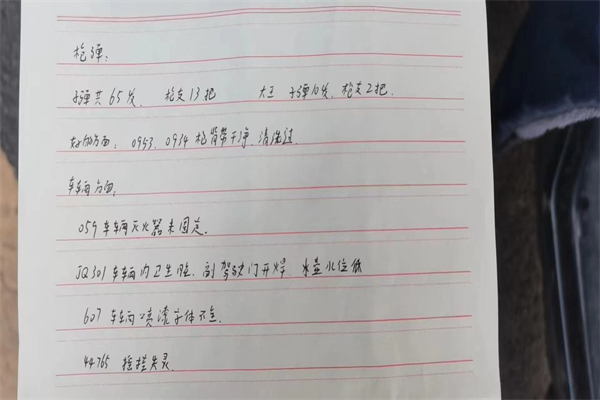 枪弹:
子弹共65发、 枪支13把 大王 子弹10发、枪支2把.
好的方面: 0953、0934枪背带干净、清洗过.
车辆方面:
059车车辆灭火器未固定.
JQ301车车辆内卫生脏、副驾驶门开焊、水壶水位低
607车车辆喷漆字体不全.
44765 摇控失灵.